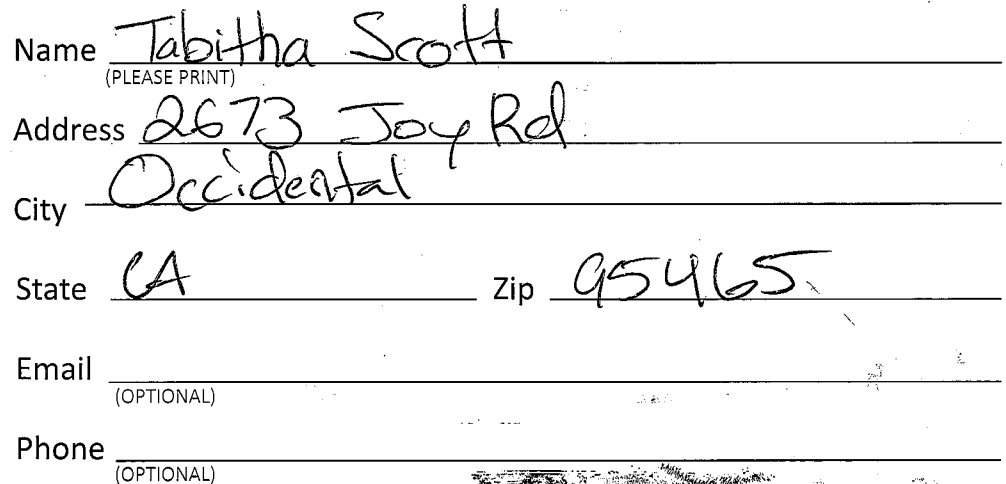 Name Tabitha Scott
(PLEASE PRINT)
Address 2673 Joy Rd
City Occidental
State CA Zip 95465
Email
(OPTIONAL)
Phone
(OPTIONAL)